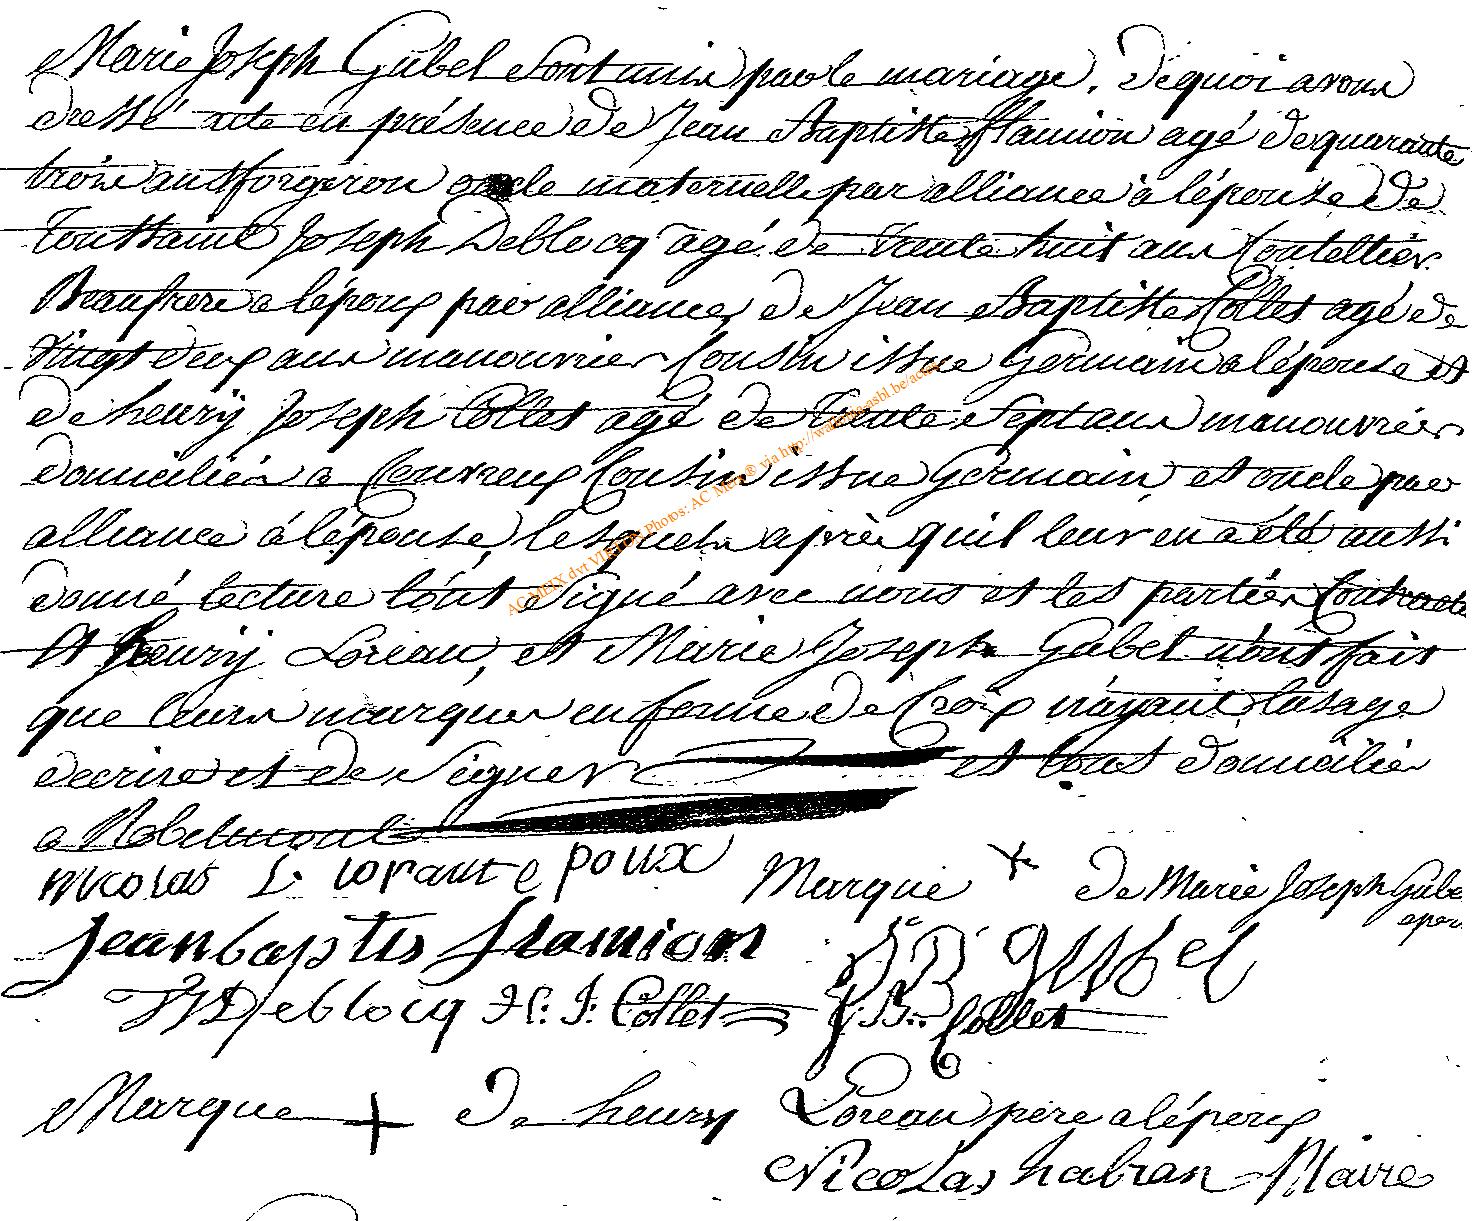 Marie Joseph Gubel sont unis par le mariage. De quoi avons
dressé acte en présence de Jean Baptiste flamion agé de quarante
trois ans forgeron oncle maternelle par alliance à lépouse de
Toussaint Joseph Deblocq agé de trente huit ans Coutellier
Beaufrere a lépoux par alliance, de Jean Baptiste Collet agé de
vingt deux ans manouvrier Cousin issue Germain a lépouse et
de henry Joseph Collet agé de trente sept ans manouvrier
domicilié a Couvreux Cousin issue Germain, et oncle par
alliance à lépouse, lesquels après quil leur en a été aussi
donné lecture lont signé avec nous et les parties Contracte
Et henry Loreau, et Marie Joseph Gubel n'ont fait
que leurs marques en forme de Croix n'ayant lusage
decrire et de signer et tous domicilié
a Robelmont
nicolas L. lorant epoux Marque x de Marie Joseph Gube
epou
Jean baptis flamion JB Gubel
TJ Deblocq H. J. Collet J. B. Collet
Marque + de henry Loreau pere a lépoux
Nicolas habran Maire
AC MEIX dvt VIRTON Photos: AC Meix® via http://wallonia-asbl.be/actes